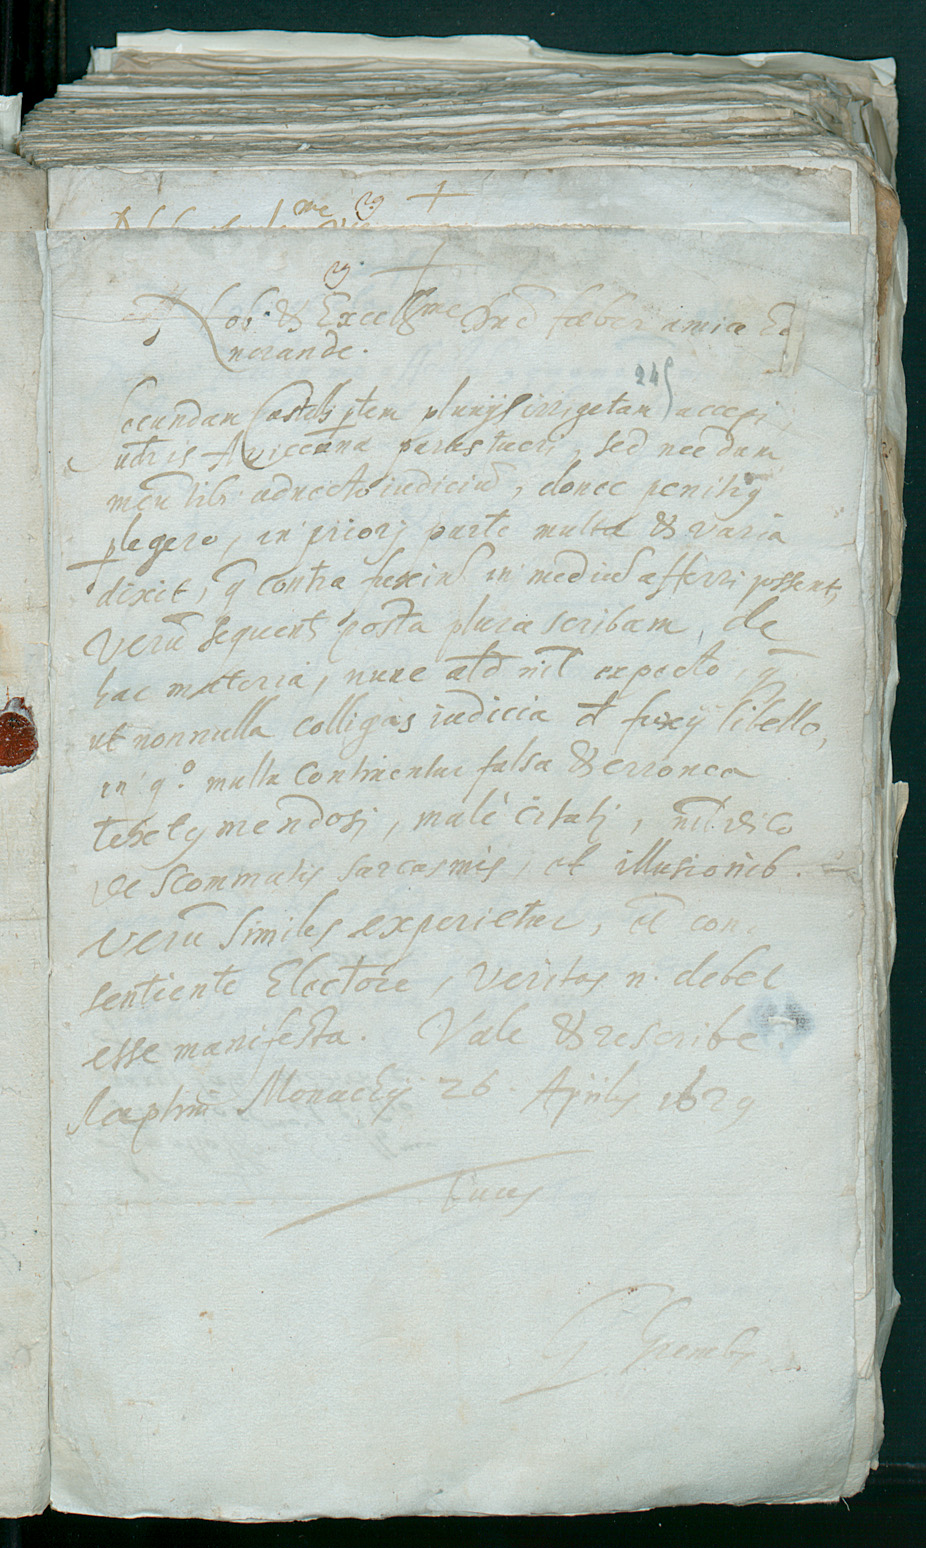 Nob. & Excell.me Dne faber amice ho
norande.
245
secundam Castelli ptem pluvijs irrigatam accepi,
utris Avicenna partes tueri, sed necdum
meu libr. adnecto iudiciu, donec penitus
plegero, in priori parte multa & varia
dixit, q contra in mediu afferri possent,
Veru sequenti posta plura scribam, de
hac materia, nunc expecto, q
ut nonnulla colligas iudicia libello,
in q.o multa continentur falsa & erronea
textus mendosi, malè citati, dico
de scommatis sarcasmis, et illusionib.
Veru similes experietur, con
sentiente Electore, Veritas n. debet
esse manifesta. Vale & rescribe
raptim Monachij 26. Aprilis 1629
tuus